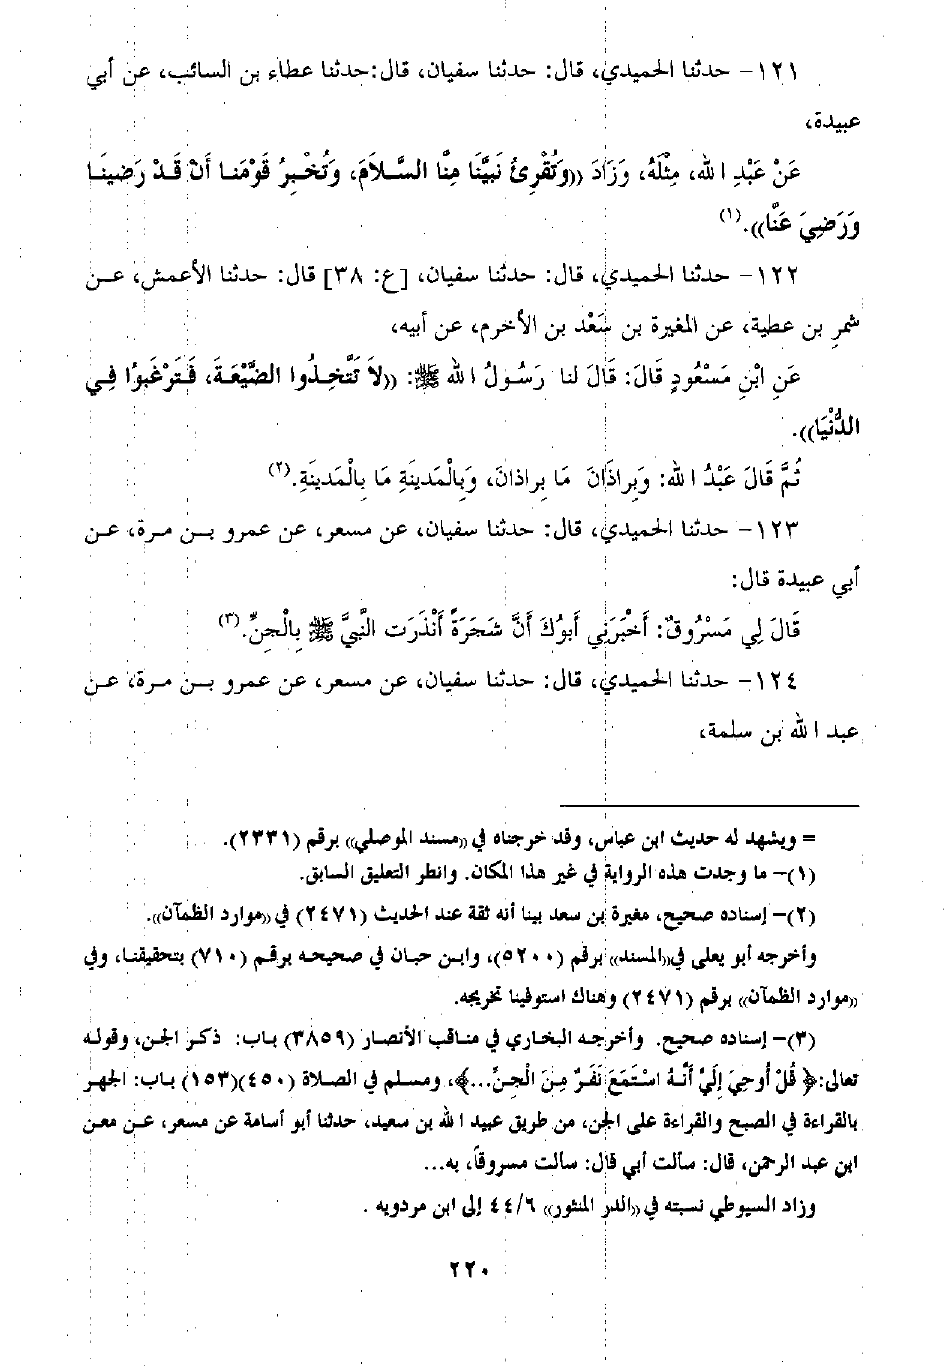 ١٢١- حدثنا الحميدي، قال: حدثنا سفيان، قال:حدثنا عطاء بن السائب، عن أبي
عبيدة،
عَنْ عَبْدِ الله، مِثْلَهُ، وَزَادَ ((وَتُقْرِئُ نَبِيَّنَا مِنَّا السَّلاَمَ، وَتُخْبِرُ قَوْمَنا أَنْ قَدْ رَضِينَا
وَرَضِيَ عَنَّا)).(١)
١٢٢- حدثنا الحميدي، قال: حدثنا سفيان، [ع: ٣٨] قال: حدثنا الأعمش، عن
شمرِ بن عطية، عن المغيرة بن سَعْد بن الأخرم، عن أبيه،
عَنِ ابْنِ مَسْعُودٍ قَالَ: قَالَ لنا رَسُولُ الله ﷺ: ((لاَ تَتَّخِذُوا الضَّيْعَةَ، فَتَرْغَبوُا فِي
الدُّنْيَا)).
ثُمَّ قَالَ عَبْدُ الله: وَبِراذَانَ مَا بِراذانَ، وَبِالْمَدِينَةِ مَا بِالْمَدِينَةِ.(٢)
١٢٣- حدثنا الحميدي، قال: حدثنا سفيان، عن مسعر، عن عمرو بن مرة، عن
أبي عبيدة قال:
قَالَ لِي مَسْرُوقٌ: أَخْبَرَنِي أَبُوكَ أَنَّ شَجَرَةً أَنْذَرَت النَّبِيَّ ﷺ بِالْجِنِّ.(٣)
١٢٤- حدثنا الحميدي، قال: حدثنا سفيان، عن مسعر، عن عمرو بن مرة، عن
عبد الله بن سلمة،
= ويشهد له حديث ابن عباس، وقد خرجناه في ((مسند الموصلي)) برقم (٢٣٣١).
(١)- ما وجدت هذه الرواية في غير هذا المكان. وانظر التعليق السابق.
(٢)- إسناده صحيح، مغيرة بن سعد بينا أنه ثقة عند الحديث (٢٤٧١) في ((موارد الظمآن)).
وأخرجه أبو يعلى في((المسند)) برقم (٥٢٠٠)، وابن حبان في صحيحه برقم (٧١٠) بتحقيقنا، وفي
((موارد الظمآن)) برقم (٢٤٧١) وهناك استوفينا تخريجه.
(٣)- إسناده صحيح. وأخرجه البخاري في مناقب الأنصار (٣٨٥٩) باب: ذكر الجن، وقوله
تعالى:﴿ قُلْ أُوحِيَ إِلَيَّ أَنَّهُ اسْتَمَعَ نَفَرٌ مِنَ الْجِنِّ...﴾، ومسلم في الصلاة (٤٥٠)(١٥٣) باب: الجهر
بالقراءة في الصبح والقراءة على الجن، من طريق عبيد الله بن سعيد، حدثنا أبو أسامة عن مسعر، عن معن
ابن عبد الرحمن، قال: سألت أبي قال: سألت مسروقاً، به...
وزاد السيوطي نسبته في ((الدر المنثور)) ٤٤/٦ إلى ابن مردويه .
٢٢٠